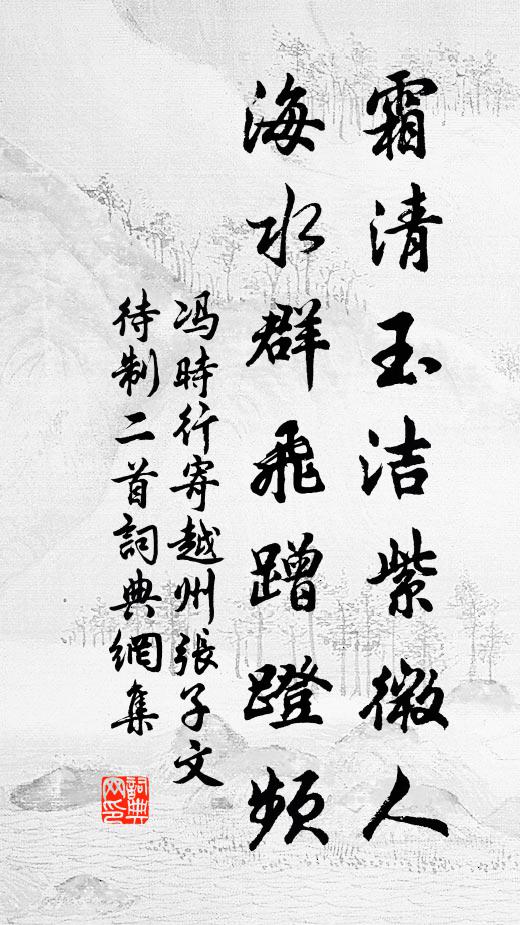 霜清玉洁紫微人
海水群飛蹭蹬频
冯時行寄越州張子文
待制二首詞典網集
詞典网印